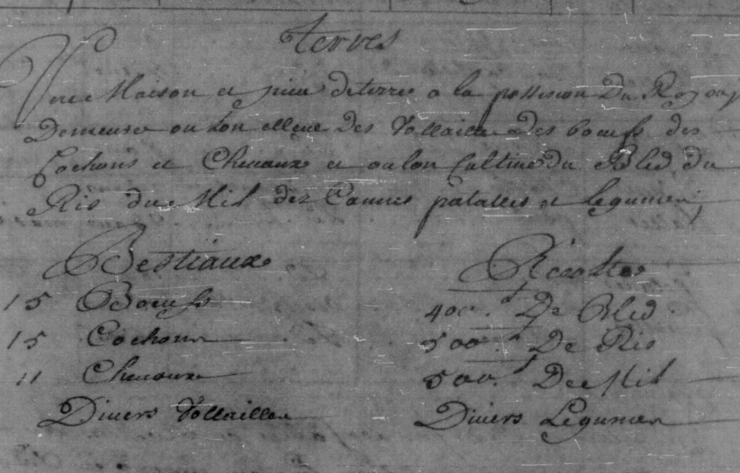 terres
Une Maison et piece deterres a la possession Du
Demeure ou lon elleve des Vollailles des boeufs des
Cochons et Chevaux et ou lon Cultive du Bled du
Ris du Mil des Cannes patattes et legumes
Bestiaux Récolte
15 Boeufs 400.# De Bled
15 Cochons 500.# De Ris
11 Chevaux 500.# De Mil
Divers Vollailles Divers Legumes